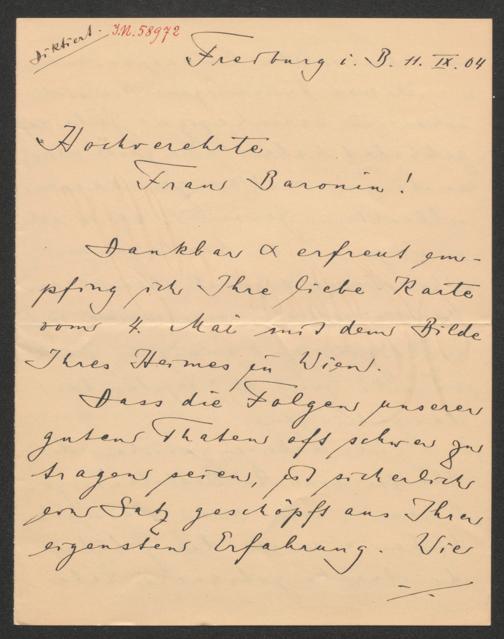 Diktiert. J.N. 58972
Freiburg i. B. 11. IX. 04
Hochverehrte
Frau Baronin!
Dankbar & erfreut em-
pfing ich Ihre liebe Karte
vom 4. Mai mit dem Bilde
Ihres Heimes in Wien.
Dass die Folgen unserer
guten Thaten oft schwer zu
tragen seien, ist sicherlich
ein Satz geschöpft aus Ihrer
eigensten Erfahrung. Wie